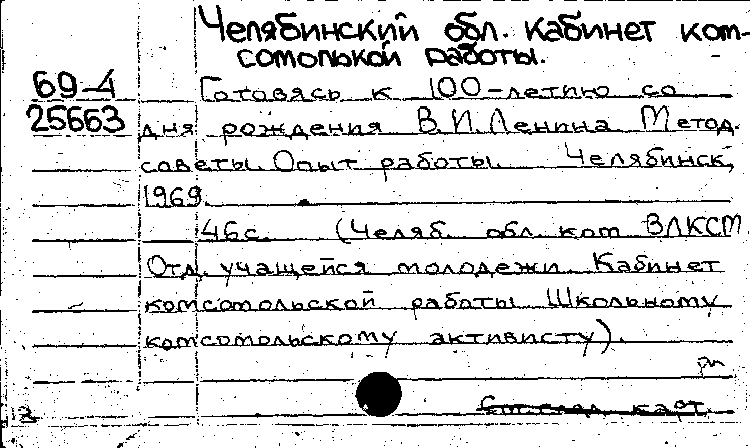 Челябинский обл. кабинет ком-
сомолькой работы.
69-4 Готовясь к 100-летию со
25663 дня рождения В.И.Ленина Метод.
советы. Опыт работы. Челябинск,
1969.
46с. (Челяб. обл. ком ВЛКСМ
Отд. учащейся молодежи. Кабинет
комсомольской работы Школьному
комсомольскому активисту).
См. след. карт.
12